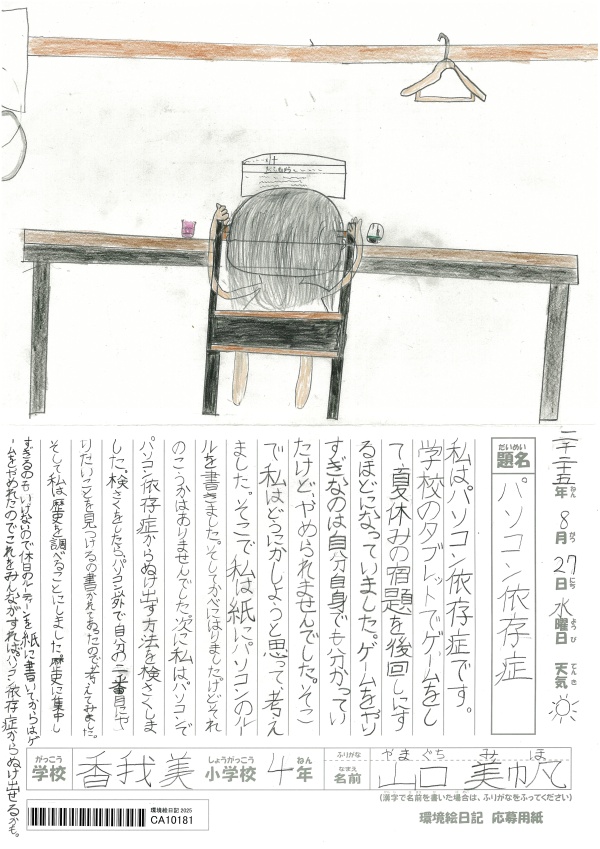 二千二十五年 8月 27日 水曜日 天気
だいめい
題名
パソコン依存症
私はパソコン依存症です。
学校のタブレットでゲームをし
て、夏休みの宿題を後回しにす
るほどになっていました。ゲームをやり
すぎなのは自分自身でも分かってい
たけど、やめられませんでした。そこ
で私はどうにかしようと思って、考え
ました。そこで私は紙にパソコンのルー
ルを書きました。そしてかべにはりましたけどそれ
のこうかはありませんでした。次に私は、パソコンで
パソコン依存症からぬけ出す方法を検さくしま
した。検さくをしたらパソコン以外で自分の一番にや
りたいことを見つけるの書かれてあったので考えてみました。
そして私は歴史を調べることにしました。歴史に集中し
すぎるのもいけないので休日のルーティーンを紙に書いてからはゲ
ームをやめれたのでこれをみんながすればパソコン依存症からぬけ出せるかも。
がっこう しょうがっこう ねん
学校 香我美 小学校 4年
ふりがな やまぐち みほ
なまえ
名前 山口 美帆
(漢字で名前を書いた場合は、ふりがなをふってください)
環境絵日記 2025
CA10181
環境絵日記 応募用紙